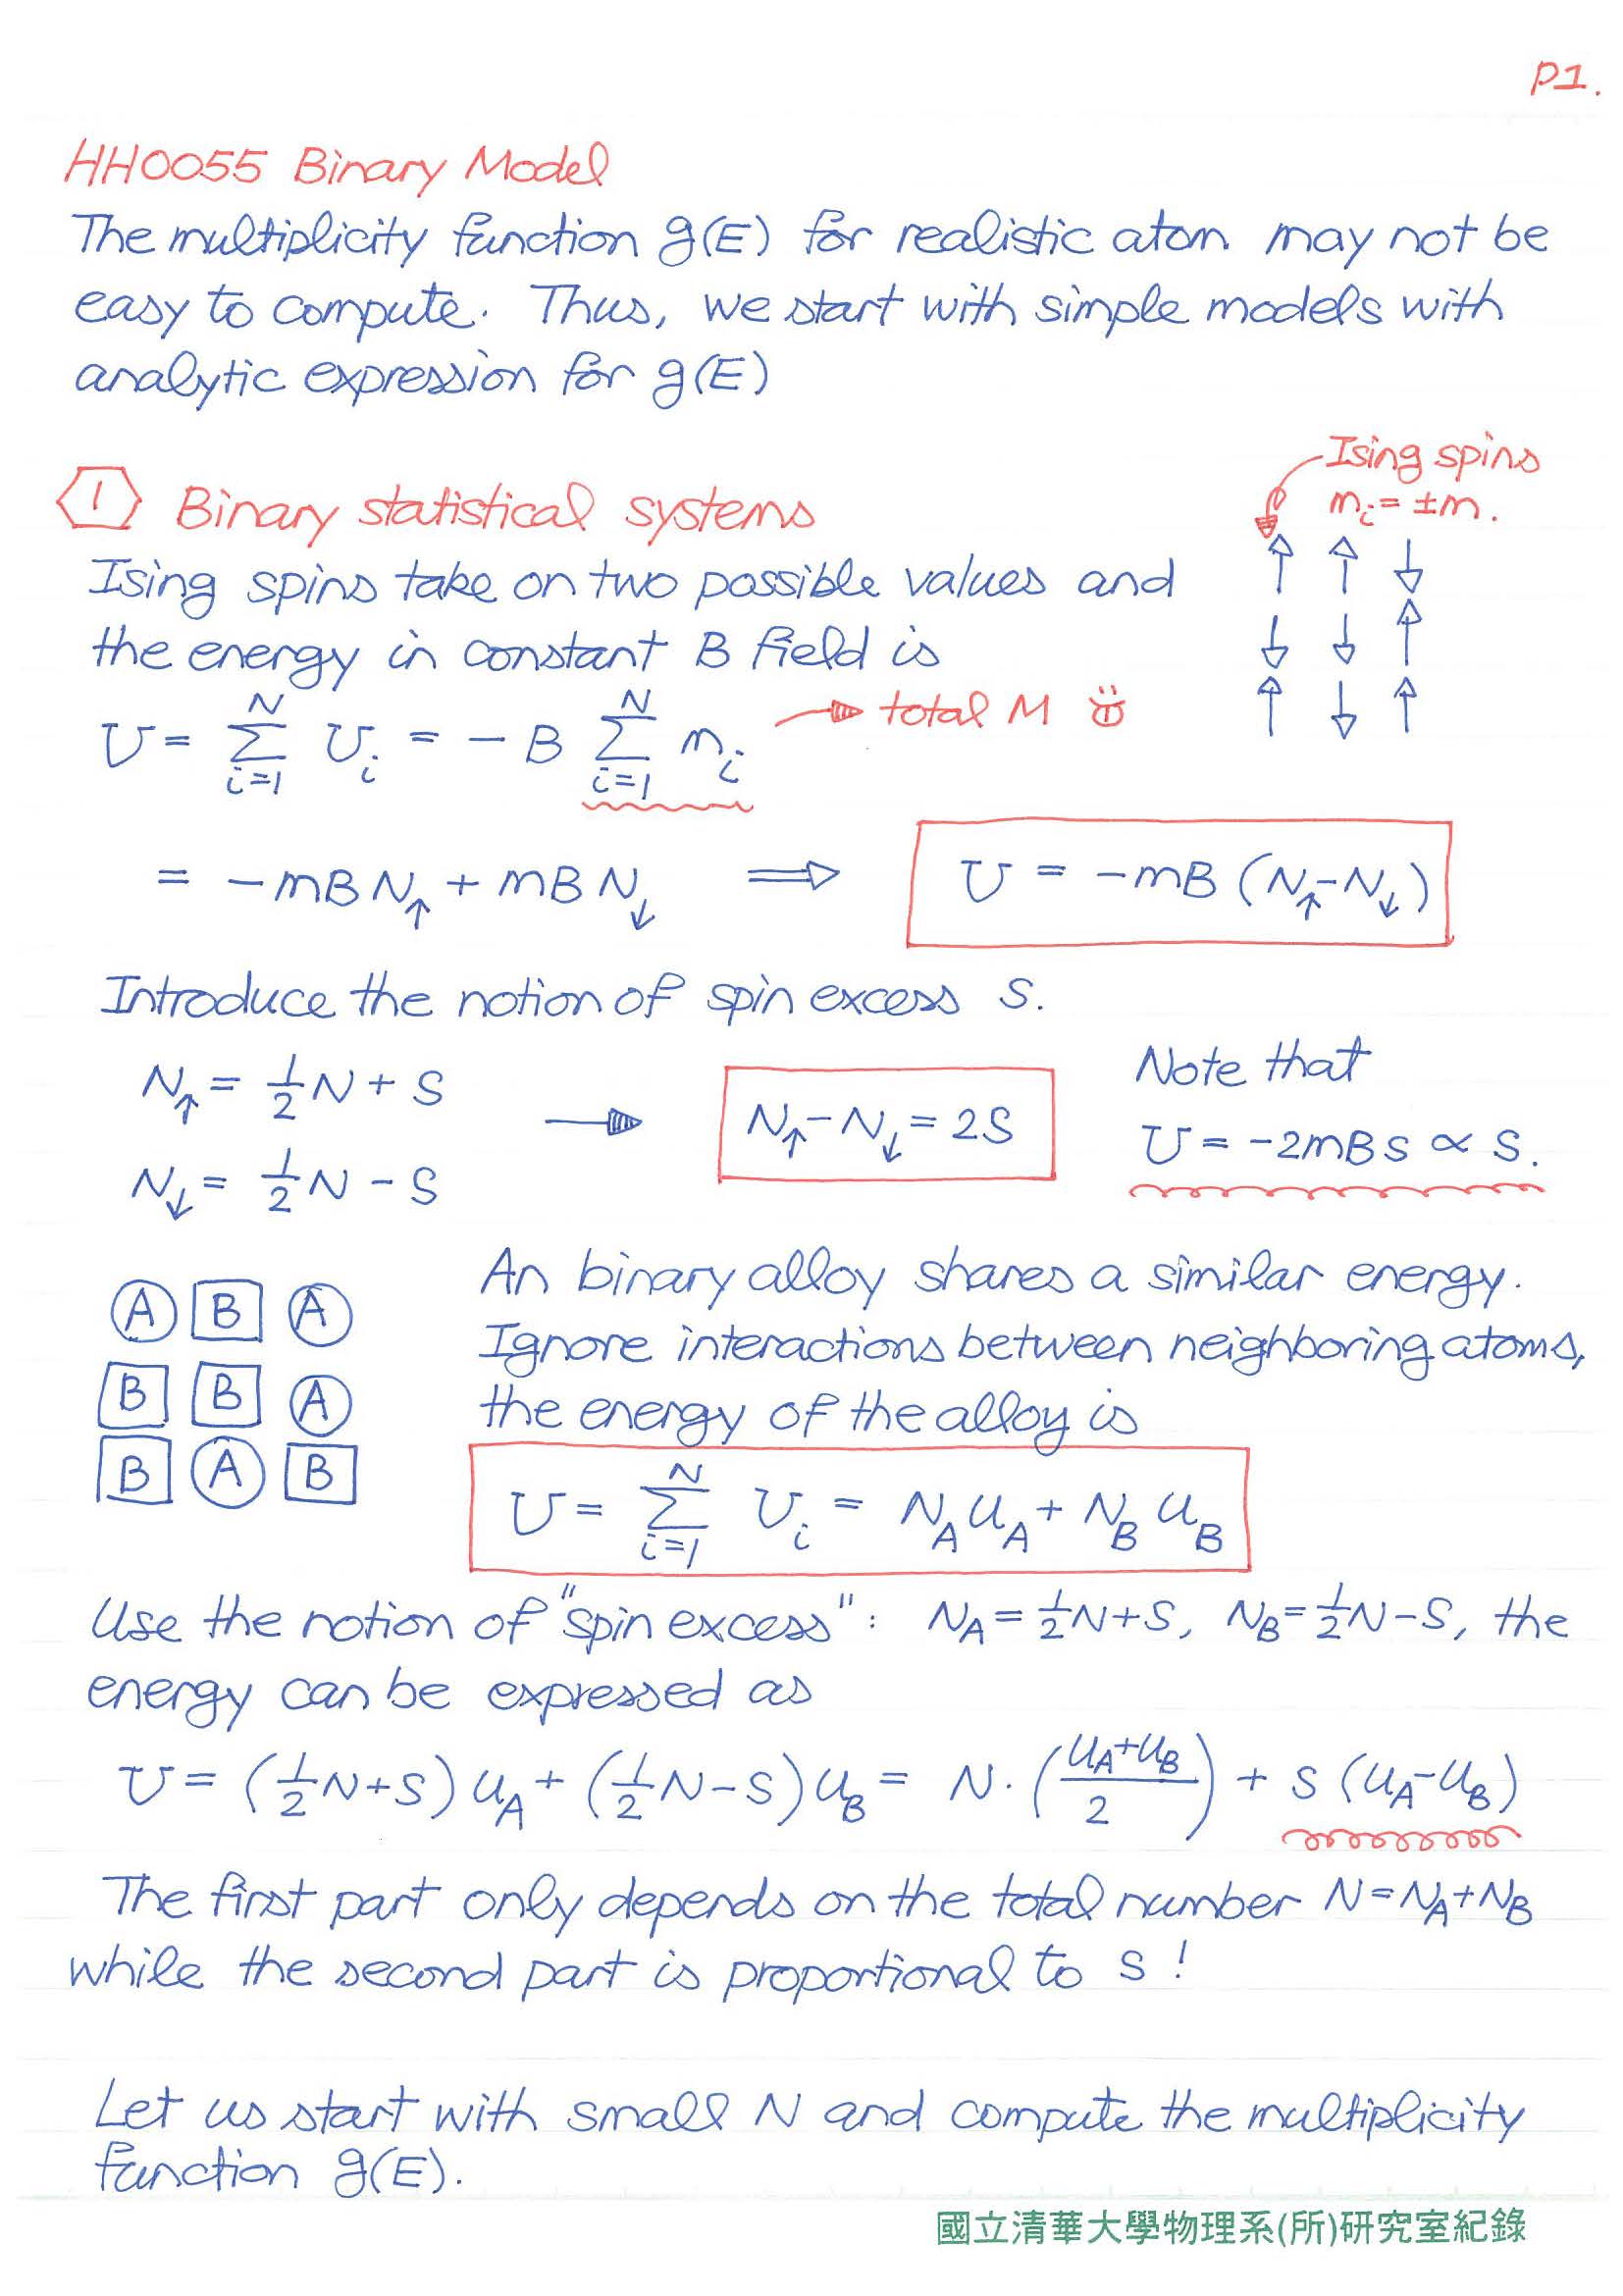 P1.
HH0055 Binary Model
The multiplicity function g(E) for realistic atom may not be
easy to compute. Thus, we start with simple models with
analytic expression for g(E)
Ising spins
mᵢ = ±m.
1 Binary statistical systems
Ising spins take on two possible values and
the energy in constant B field is
U = Σ_{i=1}^{N} Uᵢ = − B Σ_{i=1}^{N} mᵢ → total M
= −mBN↑ + mBN↓ ⟹ U = −mB (N↑−N↓)
Introduce the notion of spin excess s.
N↑ = ½N + s
N↓ = ½N − s
→ N↑−N↓ = 2s
Note that
U = −2mBs ∝ s.
A B A
B B A
B A B
An binary alloy shares a similar energy.
Ignore interactions between neighboring atoms,
the energy of the alloy is
U = Σ_{i=1}^{N} Uᵢ = N_A U_A + N_B U_B
Use the notion of "spin excess" : N_A = ½N+s, N_B = ½N−s, the
energy can be expressed as
U = (½N+s) U_A + (½N−s) U_B = N · ((U_A+U_B)/2) + s (U_A−U_B)
The first part only depends on the total number N = N_A+N_B
while the second part is proportional to s !
Let us start with small N and compute the multiplicity
function g(E).
國立清華大學物理系(所)研究室紀錄